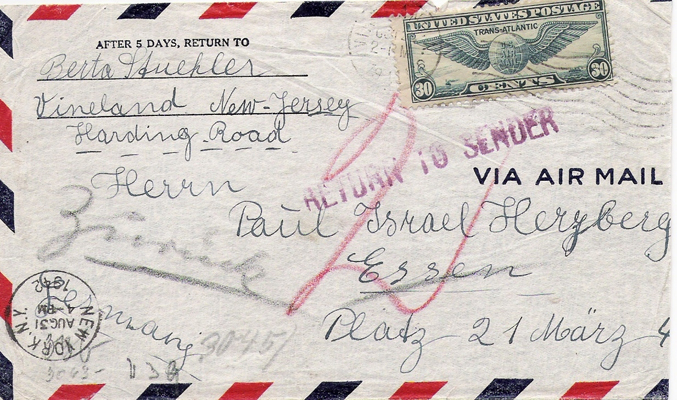 AFTER 5 DAYS, RETURN TO
Berta Stuehler
Vineland New-Jersey
Harding Road
UNITED STATES POSTAGE
TRANS-ATLANTIC
30 CENTS 30
RETURN TO SENDER
VIA AIR MAIL
Herrn
Paul Israel Herzberg
Essen
Platz 21 März 4
Zurück
Germany
NEW YORK N.Y.
AUG 31
4-PM
1942